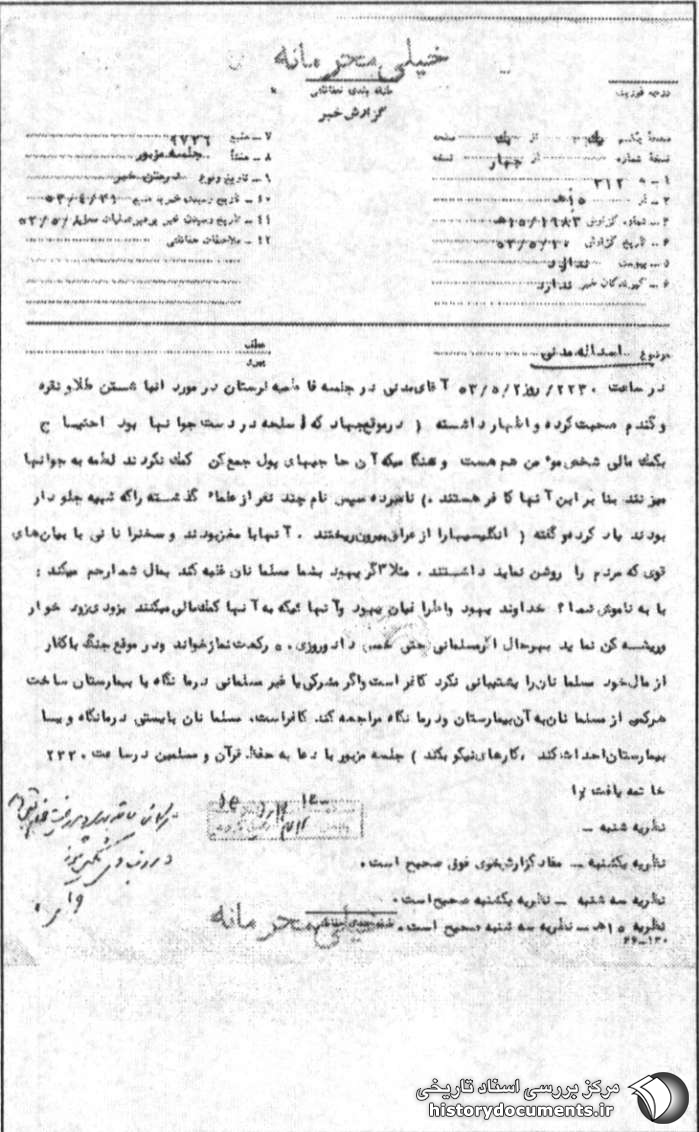 خیلی محرمانه
طبقه بندی حفاظتی
گزارش خبر
درجه فوریت
صفحهٔ یکم یک از یک صفحه
نسخهٔ شماره از چهار نسخه
۱ ــ به ۳۱۲
۲ ــ از ۱۵ هـ
۳ ــ شماره گزارش ۱۵/۱۹۸۳هـ
۴ ــ تاریخ گزارش ۵۳/۵/۱۰
۵ ــ پیوست ندارد
۶ ــ گیرندگان خبر ندارد
۷ ــ منبع ۹۷۳۶
۸ ــ منشأ جلسه مزبور
۹ ــ تاریخ وقوع درمتن خبر
۱۰ ــ تاریخ رسیدن خبر به منبع ۵۳/۴/۳۱
۱۱ ــ تاریخ رسیدن خبر به رهبر عملیات
۱۲ ــ ملاحظات حفاظتی
موضوع اسداله مدنی
عطف
پیرو
در ساعت ۲۲۳۰/ روز ۵۳/۵/۲ آقای مدنی در جلسه فاطمیه لرستان در مورد انباشتن طلا و نقره
و گندم صحبت کرده و اظهار داشته ( در موقع جهاد که اسلحه در دست جوانها بود احتیاج
بکمک مالی شخص مؤمن هم هست و هنگامیکه آن حاجیهای پول جمع کن کمک نکردند لطمه به جوانها
میزنند بنابر این آنها کافر هستند .) نامبرده سپس نام چند نفر از علماء گذشته را که شبیه جلودار
بودند یاد کرده و گفته ( انگلیسیها را از عراق بیرون ریختند . آنها با مغز بودند و سخنرانانی با بیان‌های
قوی که مردم را روشن نماید داشتند . مثلا اگر یهود بشما مسلمانان غلبه کند بمال شما رحم میکند :
یا به ناموش شما ؟ خداوند یهود واطرافیان یهود و آنهائیکه به آنها کمک مالی میکنند بزودی زود خوار
و ریشه کن نماید بهرحال اگر مسلمانی حتی خمس داد و روزی ۵۰ رکعت نماز خواند و در موقع جنگ با کفار
از مال خود مسلمانان را پشتیبانی نکرد کافر است و اگر مشرکی یا غیر مسلمانی درمانگاه یا بیمارستان ساخت
هرکس از مسلمانان به آن بیمارستان و درمانگاه مراجعه کند کافر است، مسلمانان بایستی درمانگاه و یا
بیمارستان احداث کند ، کارهای نیکو بکند ) جلسه مزبور با دعا به حفظ قرآن و مسلمین در ساعت ۲۳۳۰
خاتمه یافت
نظریه شنبه ــ
نظریه یکشنبه ــ مفاد گزارش خبری فوق صحیح است .
نظریه سه شنبه ــ نظریه یکشنبه صحیح است .
نظریه ۱۵هـ ــ نظریه سه شنبه صحیح است .
خیلی محرمانه
۲۶ــ۱۳۰
مرکز بررسی اسناد تاریخی
historydocuments.ir